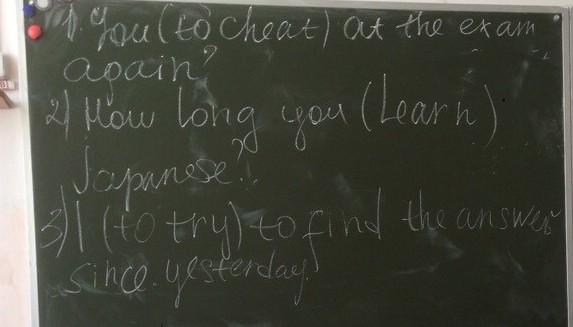 1. You (to cheat) at the exam
again?
2) How long you (learn)
Japanese?
3) I (to try) to find the answer
since yesterday.